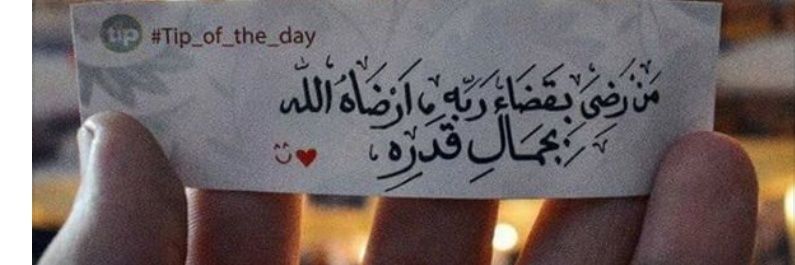 tip #Tip_of_the_day
مَنْ رَضِيَ بِقَضَاءِ رَبِّهِ، اَرْضَاهُ اللّٰه
بِجَمَالِ قَدَرِه،